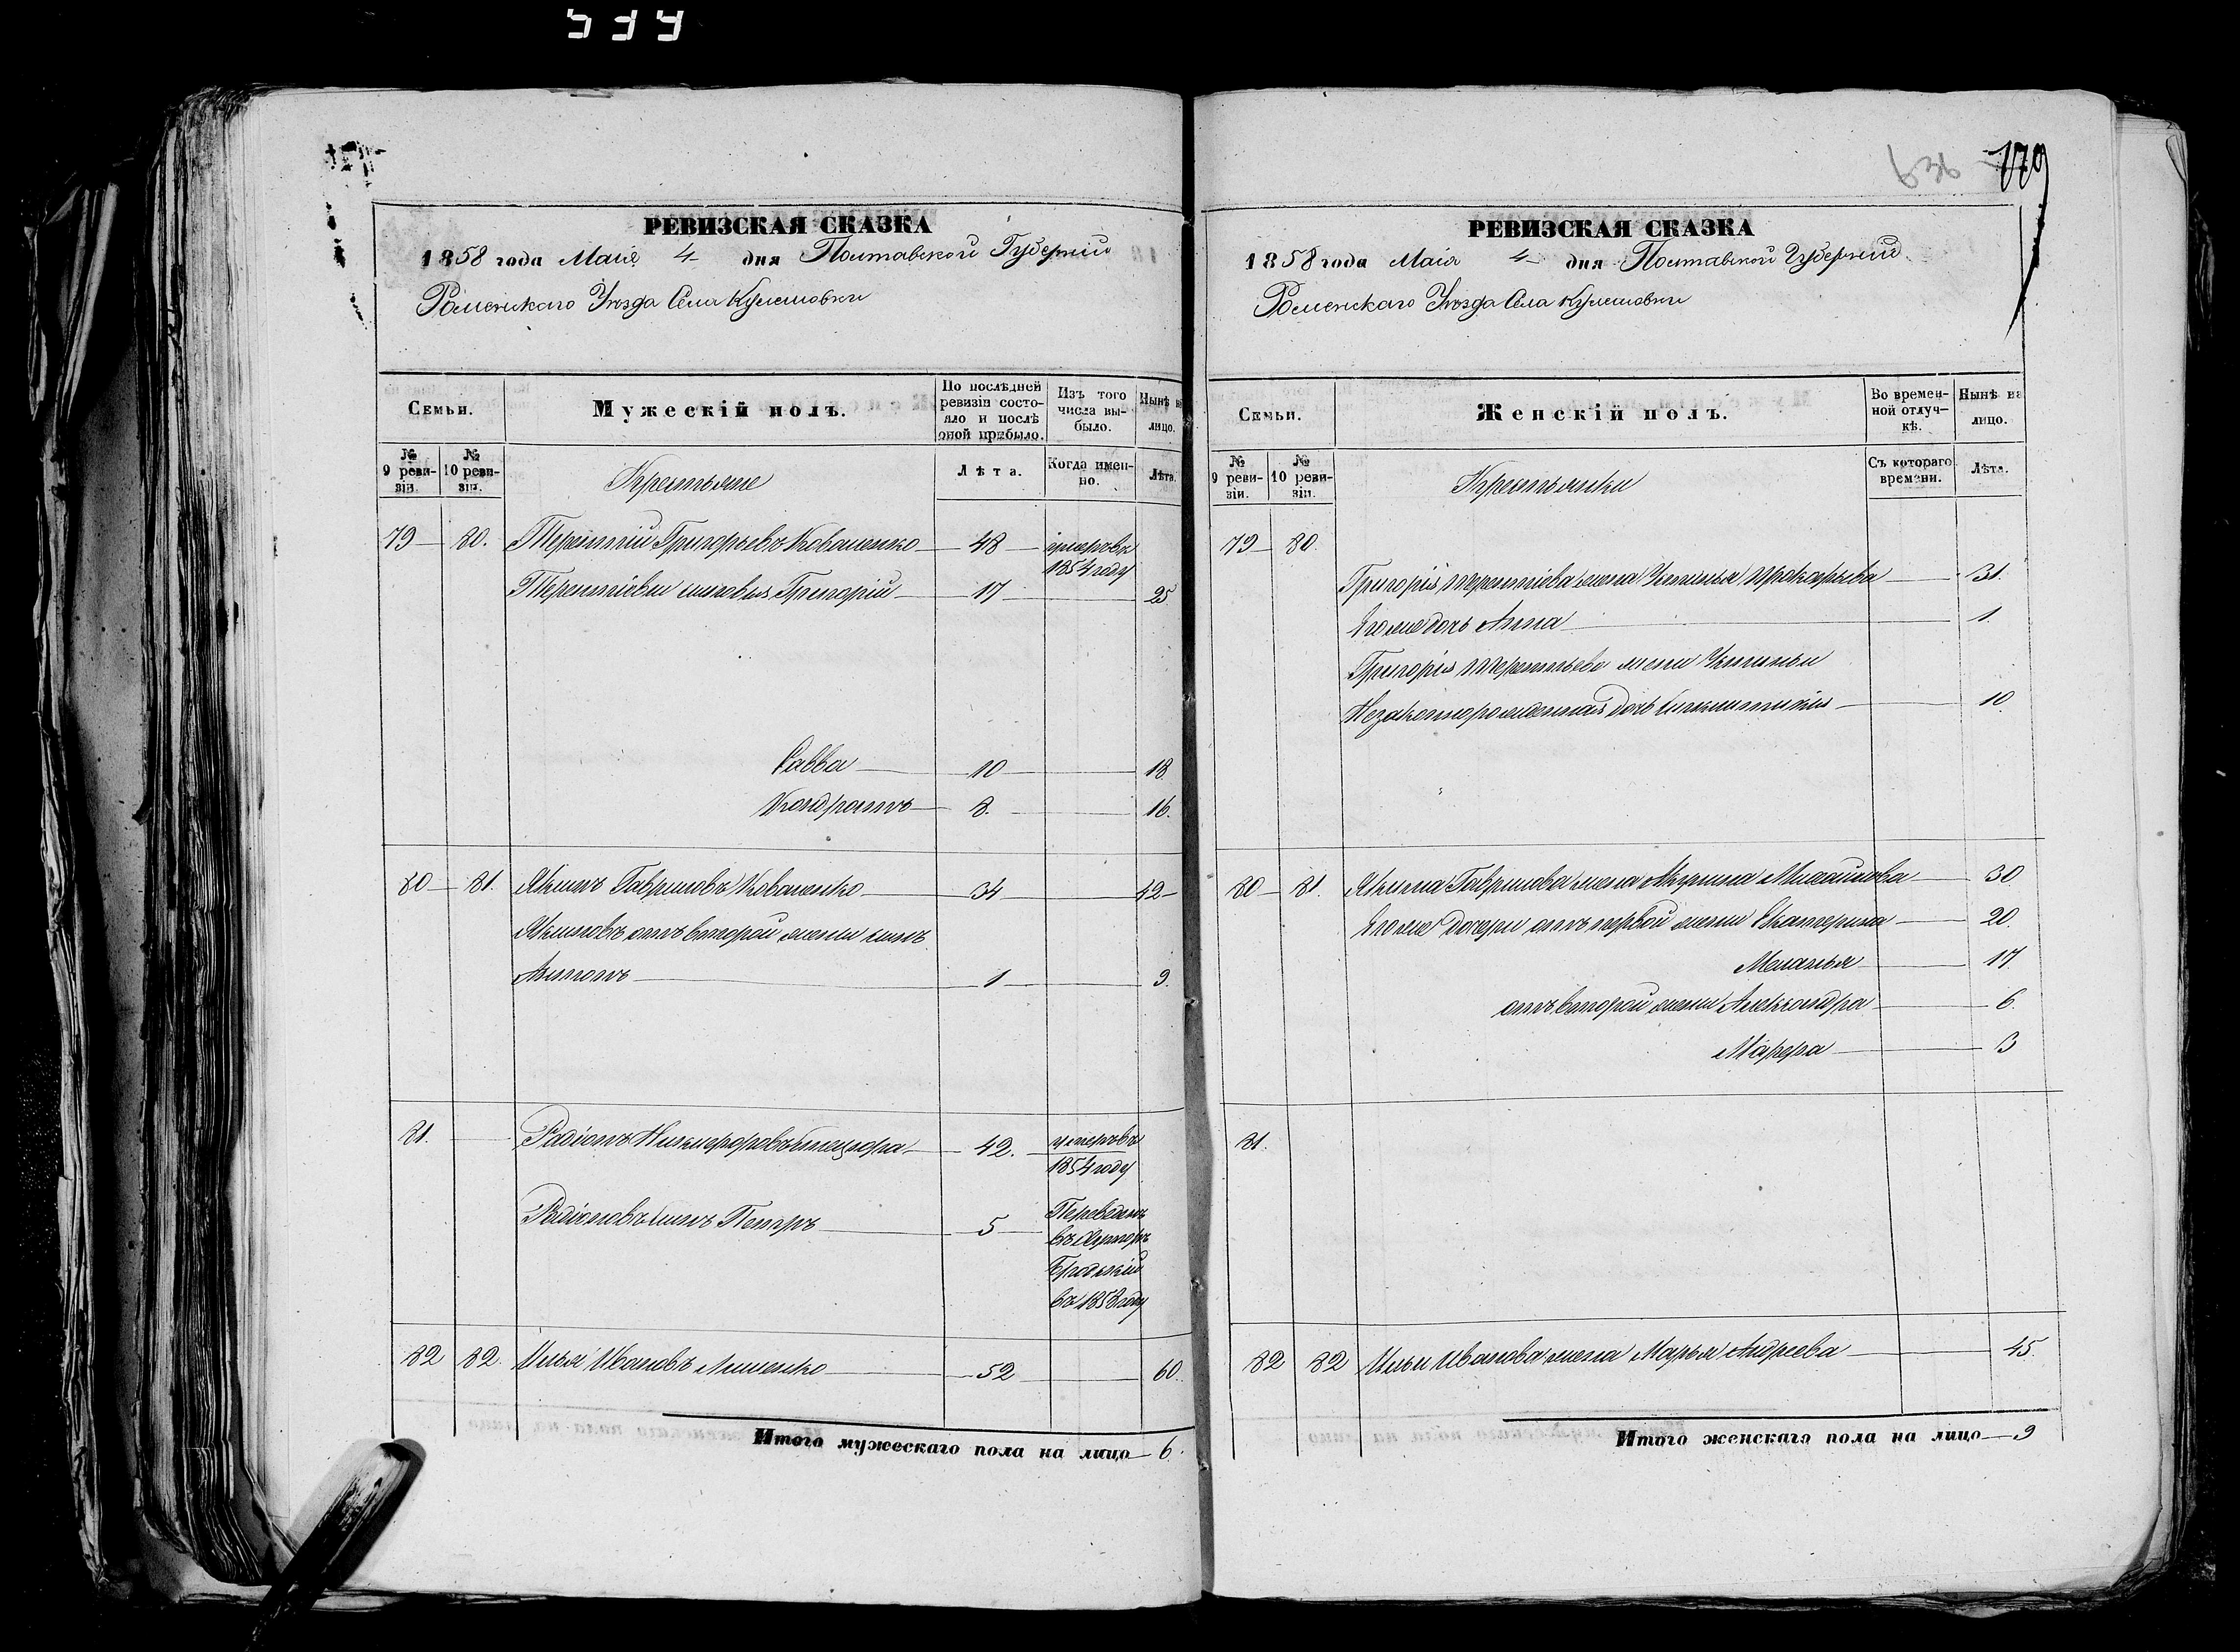 РЕВИЗСКАЯ СКАЗКА
1858 года Маия 4 дня Полтавской Губернии
Роменскаго Уезда Села Кулешовки
Семьи.
Мужескій полъ.
По послѣдней ревизіи состояло и послѣ оной прибыло.
Изъ того числа выбыло.
Нынѣ на лицо.
№ 9 ревизіи.
№ 10 ревизіи.
Крестьяне
Лѣта.
Когда именно.
Лѣта.
79 80. Терентій Григорьевъ Коваленко 48 умеръ въ 1854 году
Терентіевы сыновья Григорій 17 25
Савва 10 18
Кондратъ 8. 16.
80 81. Якимъ Гавриловъ Коваленко 34 42
Якимовъ отъ второй жены сынъ
Антонъ 1 9.
81. Радіонъ Никифоровъ 42. умеръ въ
1854 году
Радіоновъ сынъ Петръ 5 Переведенъ
въ Хуторъ
въ 1858 году
82 82. Илья Ивановъ Лешенко 52 60.
Итого мужескаго пола на лицо 6.
636 179
РЕВИЗСКАЯ СКАЗКА
1858 года Маія 4 дня Полтавской Губерніи
Роменскаго Уезда Села Кулешовки
Семьи.
Женскій полъ.
Во временной отлучкѣ.
Нынѣ на лицо.
№ 9 ревизіи.
№ 10 ревизіи.
Крестьянки
Съ котораго времени.
Лѣта.
79 80.
Григорія Терентіева жена Устинья 31.
Его же дочь Анна 1.
Григорія Терентьева жены Устиньи
Незаконорожденная дочь 10
80 81. Якима Гаврилова жена Марина Михайлова 30
Его же дочери отъ первой жены Екатерина 20.
Меланья 17.
отъ второй жены Александра 6.
Марфа 3
81.
82 82 Ильи Иванова жена Марья Андреева 45.
Итого женскаго пола на лицо 9